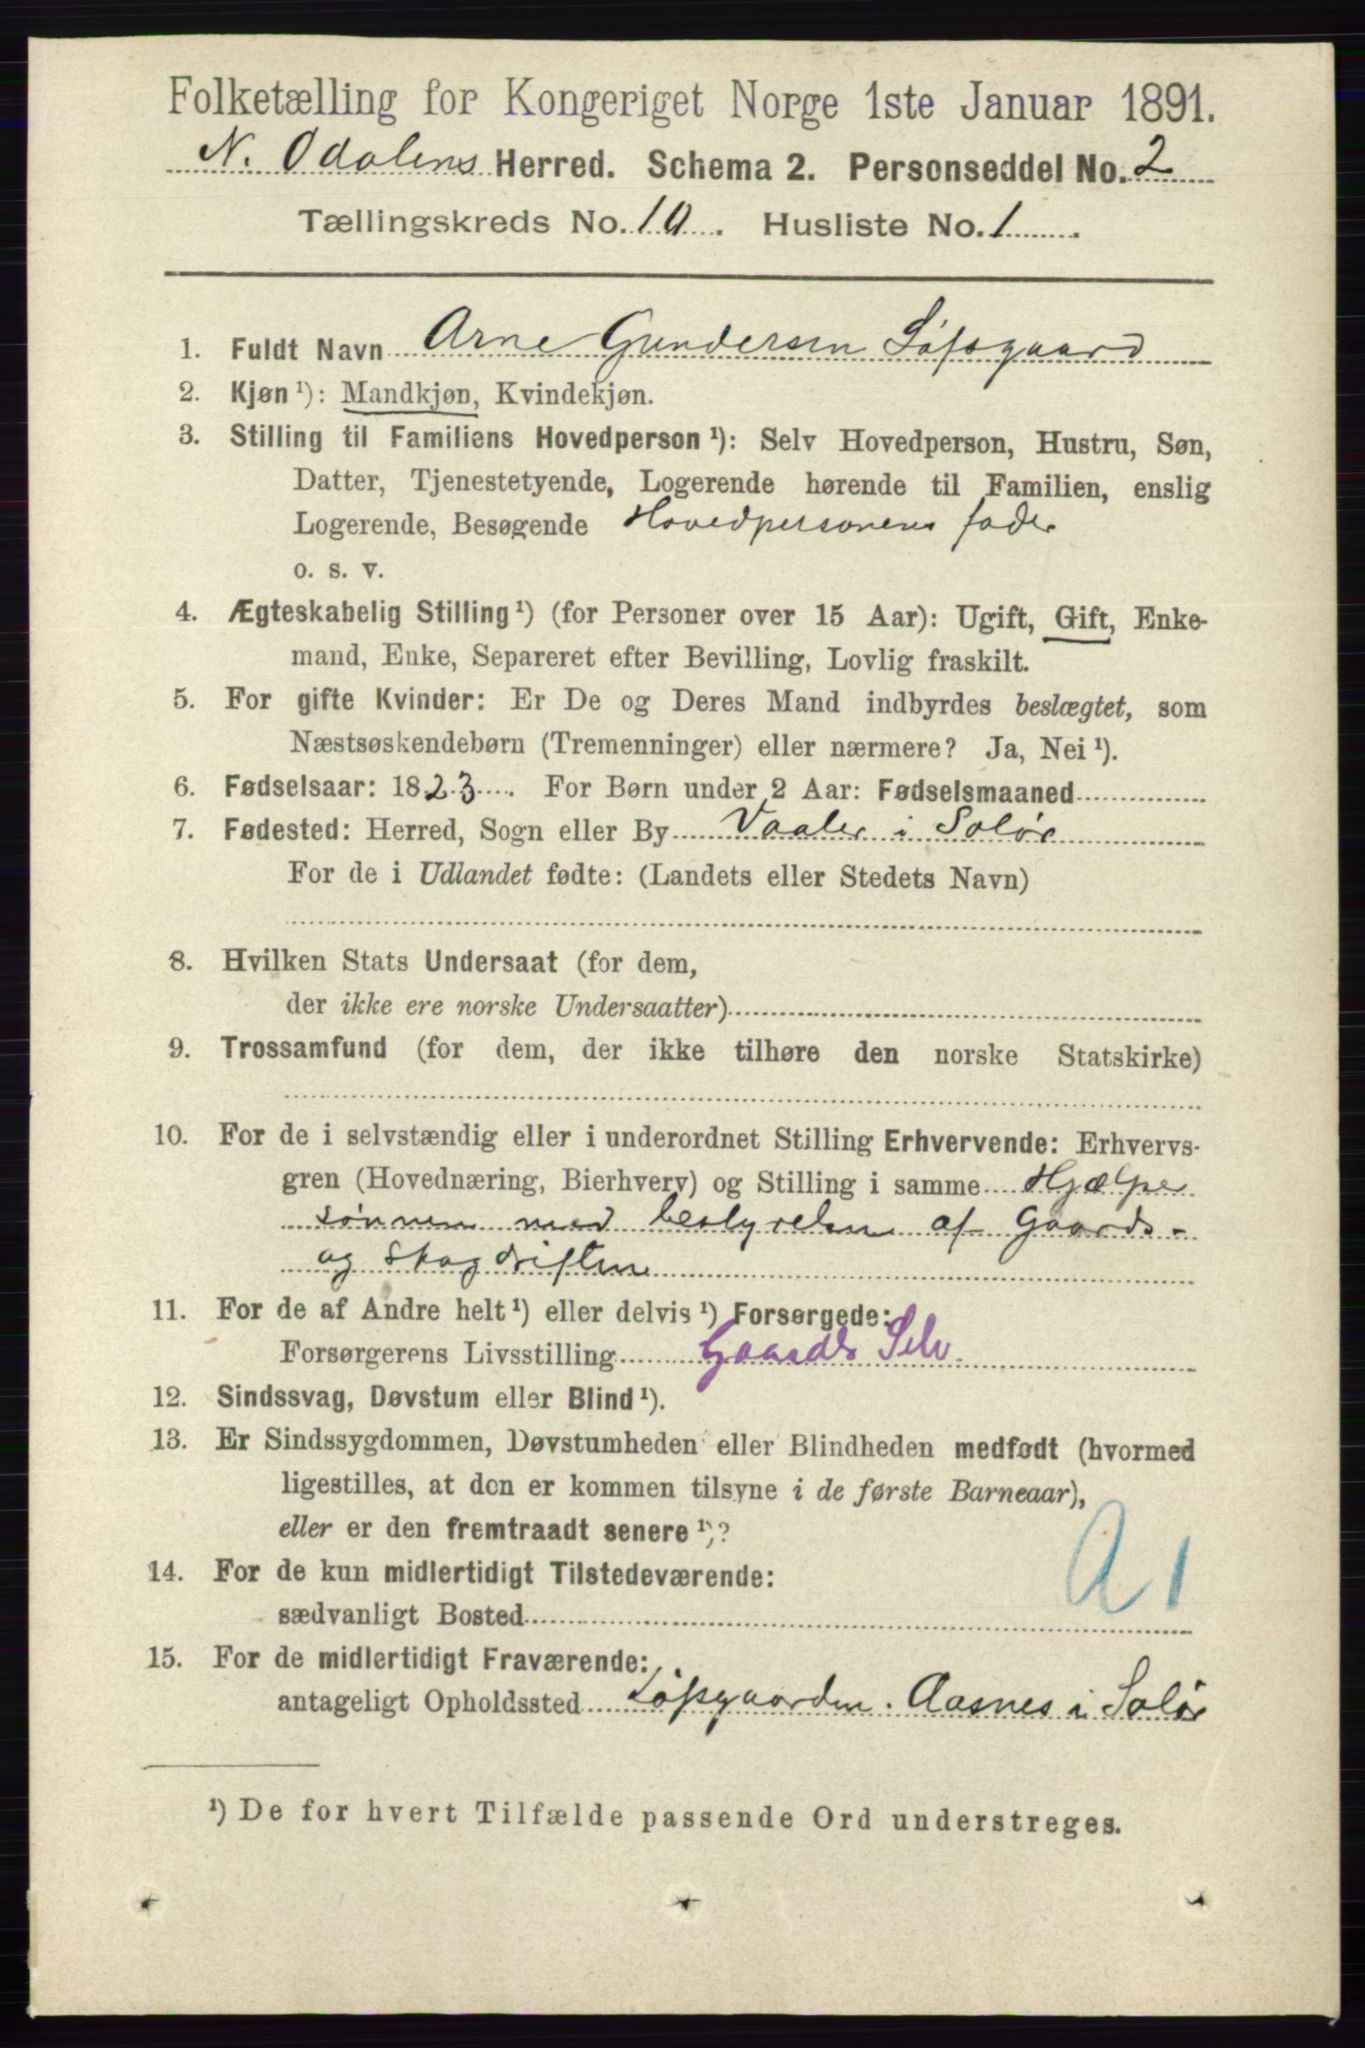 Folketælling for Kongeriget Norge 1ste Januar 1891.
N. Odalens Herred. Schema 2. Personseddel No. 2
Tællingskreds No. 10. Husliste No. 1
1. Fuldt Navn Arne Gundersen Løfsgaard
2. Kjøn ¹): Mandkjøn, Kvindekjøn.
3. Stilling til Familiens Hovedperson ¹): Selv Hovedperson, Hustru, Søn,
Datter, Tjenestetyende, Logerende hørende til Familien, enslig
Logerende, Besøgende Hovedpersonens fader
o. s. v.
4. Ægteskabelig Stilling ¹) (for Personer over 15 Aar): Ugift, Gift, Enke-
mand, Enke, Separeret efter Bevilling, Lovlig fraskilt.
5. For gifte Kvinder: Er De og Deres Mand indbyrdes beslægtet, som
Næstsøskendebørn (Tremenninger) eller nærmere? Ja, Nei ¹).
6. Fødselsaar: 1823. For Børn under 2 Aar: Fødselsmaaned
7. Fødested: Herred, Sogn eller By Vaaler i Solør
For de i Udlandet fødte: (Landets eller Stedets Navn)
8. Hvilken Stats Undersaat (for dem,
der ikke ere norske Undersaatter)
9. Trossamfund (for dem, der ikke tilhøre den norske Statskirke)
10. For de i selvstændig eller i underordnet Stilling Erhvervende: Erhvervs-
gren (Hovednæring, Bierhverv) og Stilling i samme Hjælper
sønnen med bestyrelsen af Gaards-
og Skogdriften
11. For de af Andre helt ¹) eller delvis ¹) Forsørgede:
Forsørgerens Livsstilling Gaardb Selv.
12. Sindssvag, Døvstum eller Blind ¹).
13. Er Sindssygdommen, Døvstumheden eller Blindheden medfødt (hvormed
ligestilles, at den er kommen tilsyne i de første Barneaar),
eller er den fremtraadt senere ¹)?
A 1
14. For de kun midlertidigt Tilstedeværende:
sædvanligt Bosted
15. For de midlertidigt Fraværende:
antageligt Opholdssted Løfsgaarden. Aasnes i Solør
¹) De for hvert Tilfælde passende Ord understreges.